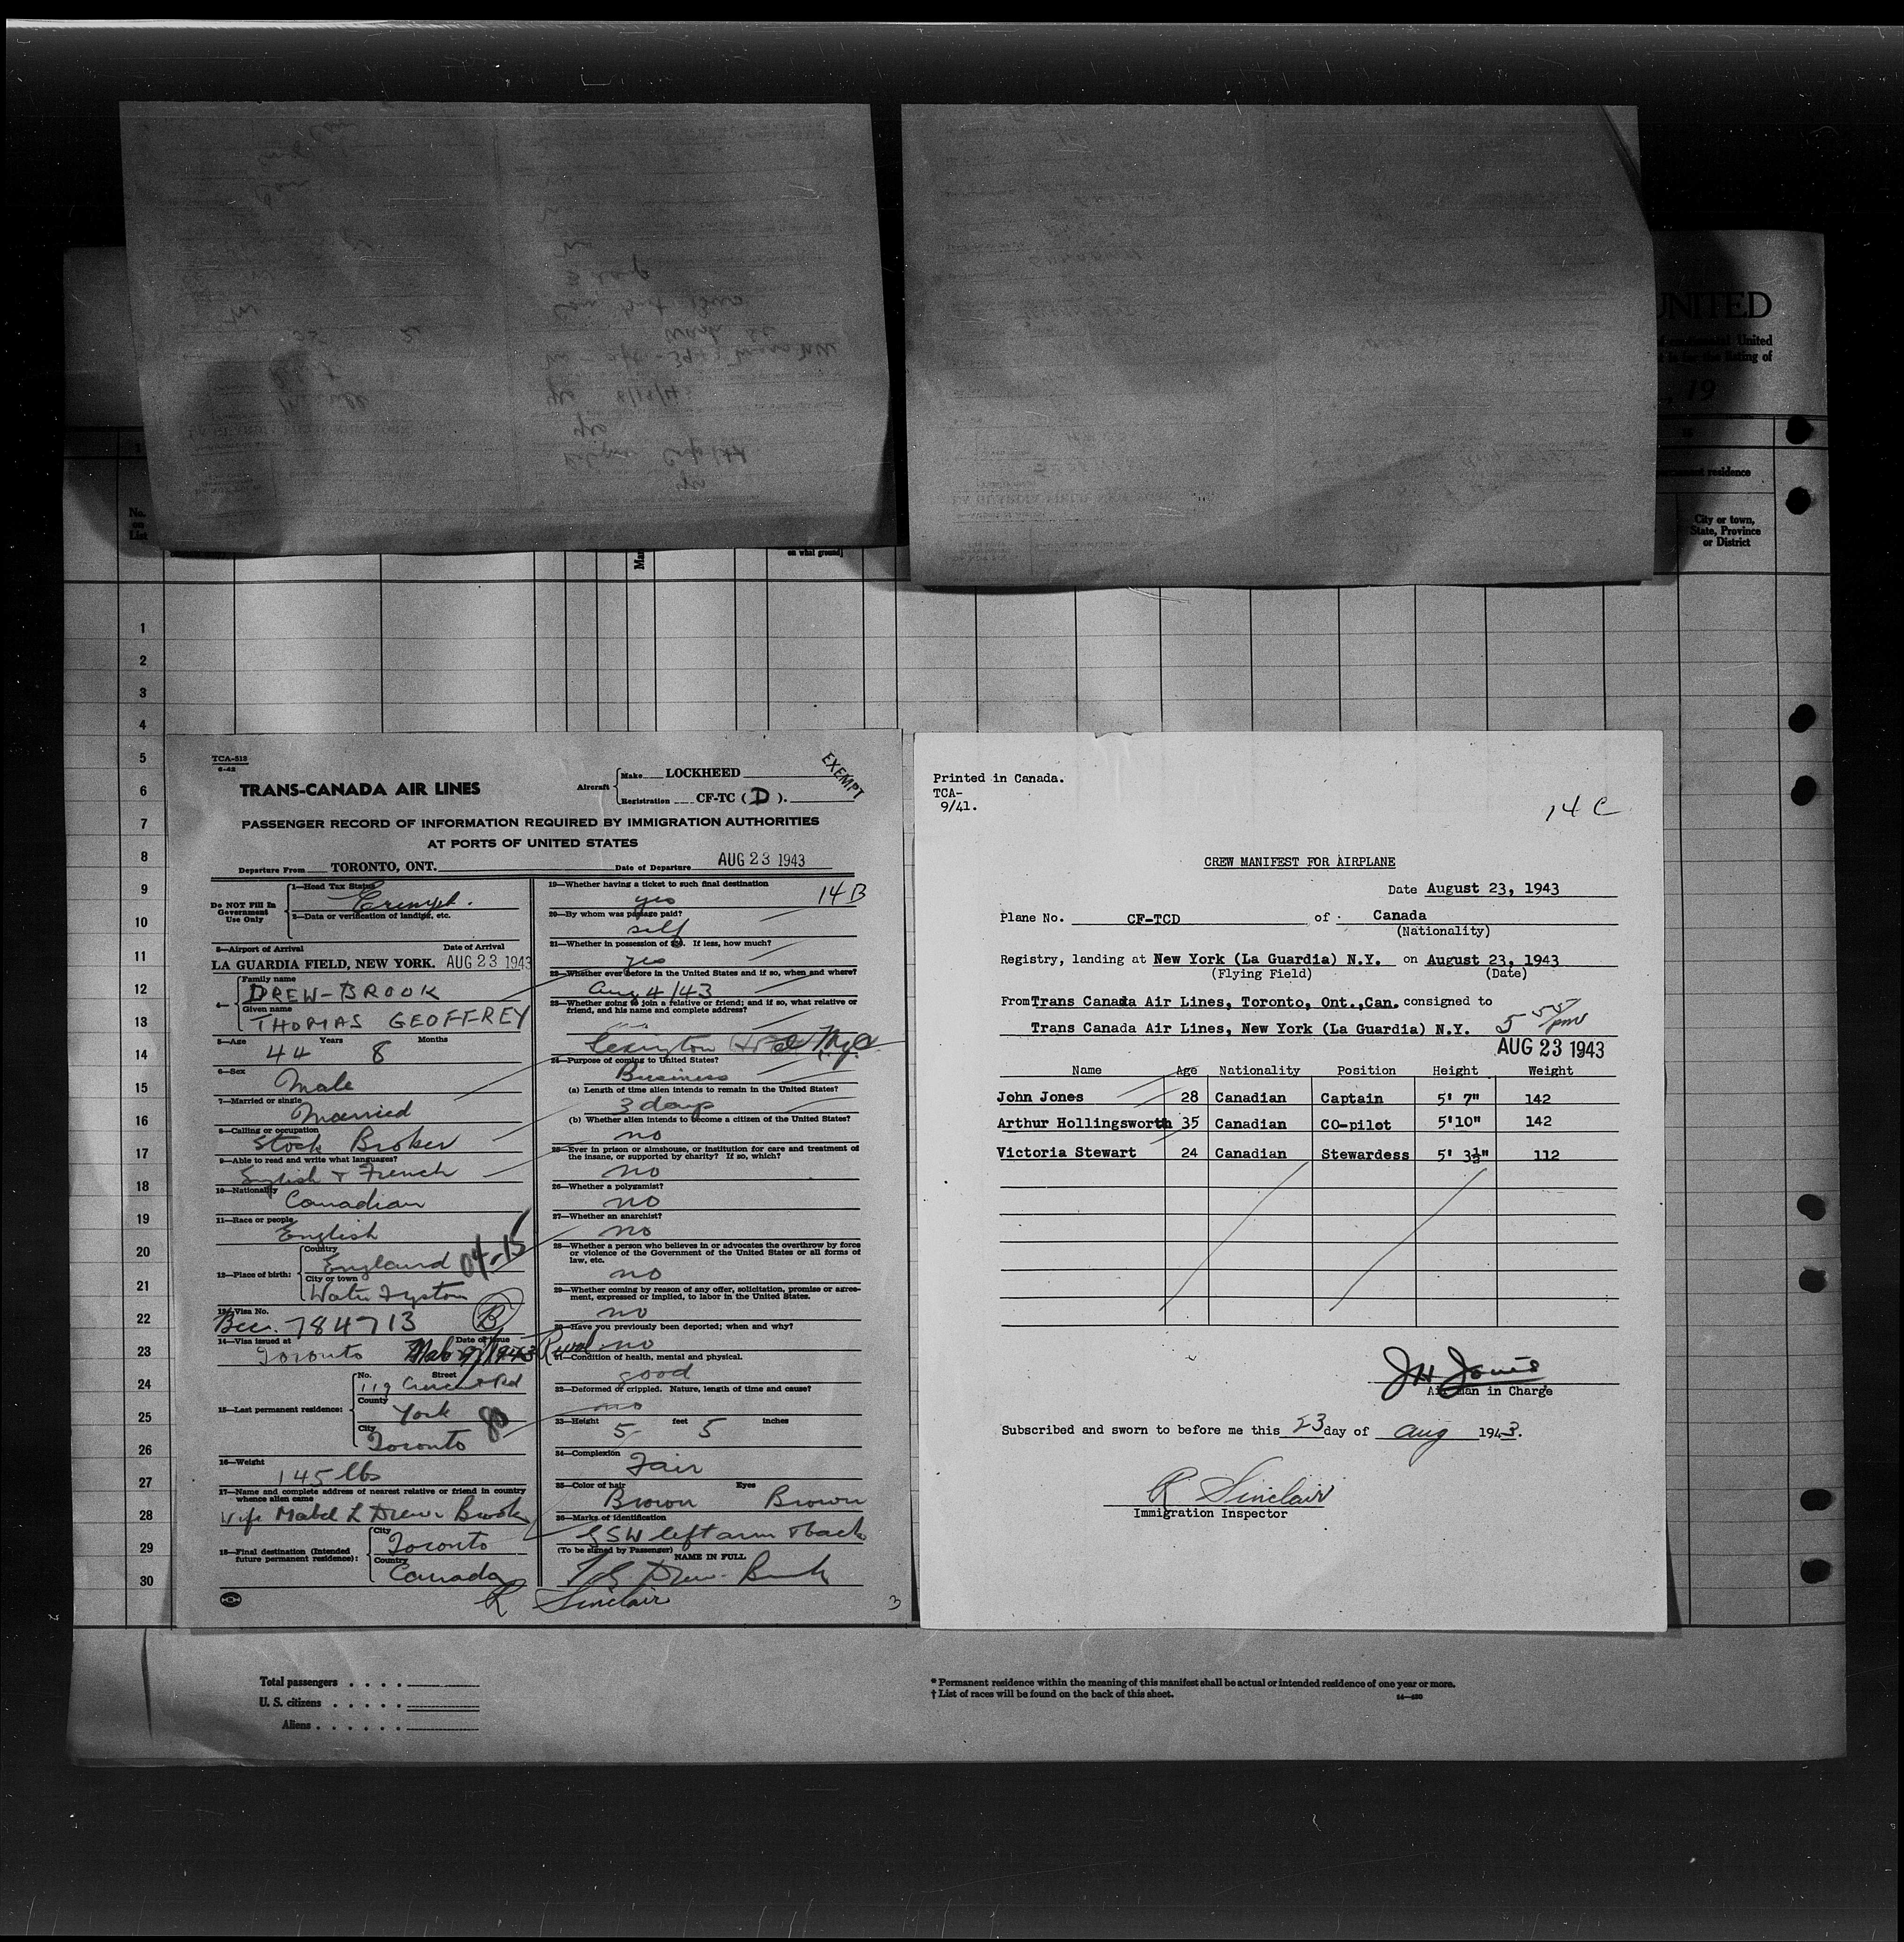 UNITED
United
listing of
, 19
permanent residence
No.
on
List
City or town,
State, Province
or District
on what ground]
1
2
3
4
5
6
7
8
9
10
11
12
13
14
15
16
17
18
19
20
21
22
23
24
25
26
27
28
29
30
TCA-518
6-42
TRANS-CANADA AIR LINES
Aircraft
Make LOCKHEED
Registration CF-TC ( D ).
EXEMPT
PASSENGER RECORD OF INFORMATION REQUIRED BY IMMIGRATION AUTHORITIES
AT PORTS OF UNITED STATES
Departure From TORONTO, ONT. Date of Departure AUG 23 1943
Do NOT Fill In
Government
Use Only
1—Head Tax Status
Exempt.
2—Data or verification of landing, etc.
3—Airport of Arrival Date of Arrival
LA GUARDIA FIELD, NEW YORK. AUG 23 1943
4— Family name
DREW-BROOK
Given name
THOMAS GEOFFREY
5—Age 44 Years 8 Months
6—Sex
Male
7—Married or single
Married
8—Calling or occupation
Stock Broker
9—Able to read and write what languages?
English & French
10—Nationality
Canadian
11—Race or people
English
12—Place of birth:
Country
England 04-15
City or town
13—Visa No.
Bcc. 784713 B
14—Visa issued at Date of Issue
Toronto
15—Last permanent residence:
No. Street
119 Crescent Rd
County
York 80
City
Toronto
16—Weight
145 lbs
17—Name and complete address of nearest relative or friend in country
whence alien came
Wife Mabel L Drew-Brook
18—Final destination (Intended
future permanent residence):
City
Toronto
Country
Canada
19—Whether having a ticket to such final destination
yes 14 B
20—By whom was passage paid?
self
21—Whether in possession of $50. If less, how much?
yes
22—Whether ever before in the United States and if so, when and where?
Aug 4/43
23—Whether going to join a relative or friend; and if so, what relative or
friend, and his name and complete address?
Lexington Hotel NYC
24—Purpose of coming to United States?
Business
(a) Length of time alien intends to remain in the United States?
3 days
(b) Whether alien intends to become a citizen of the United States?
no
25—Ever in prison or almshouse, or institution for care and treatment of
the insane, or supported by charity? If so, which?
no
26—Whether a polygamist?
no
27—Whether an anarchist?
no
28—Whether a person who believes in or advocates the overthrow by force
or violence of the Government of the United States or all forms of
law, etc.
no
29—Whether coming by reason of any offer, solicitation, promise or agree-
ment, expressed or implied, to labor in the United States.
no
30—Have you previously been deported; when and why?
no
31—Condition of health, mental and physical.
good
32—Deformed or crippled. Nature, length of time and cause?
no
33—Height feet inches
5 5
34—Complexion
Fair
35—Color of hair Eyes
Brown Brown
36—Marks of identification
GSW left arm & back
(To be signed by Passenger) NAME IN FULL
T G Drew-Brook
R Sinclair
3
Printed in Canada.
TCA-
9/41.
14 C
CREW MANIFEST FOR AIRPLANE
Date August 23, 1943
Plane No. CF-TCD of Canada
(Nationality)
Registry, landing at New York (La Guardia) N.Y. on August 23, 1943
(Flying Field) (Date)
From Trans Canada Air Lines, Toronto, Ont.,Can. consigned to
Trans Canada Air Lines, New York (La Guardia) N.Y. 5 55 pm
AUG 23 1943
Name Age Nationality Position Height Weight
John Jones 28 Canadian Captain 5' 7" 142
Arthur Hollingsworth 35 Canadian CO-pilot 5'10" 142
Victoria Stewart 24 Canadian Stewardess 5' 3½" 112
JH Jones
Air man in Charge
Subscribed and sworn to before me this 23 day of Aug 1943.
R Sinclair
Immigration Inspector
Total passengers . . . .
U. S. citizens . . . . .
Aliens . . . . . .
* Permanent residence within the meaning of this manifest shall be actual or intended residence of one year or more.
† List of races will be found on the back of this sheet.